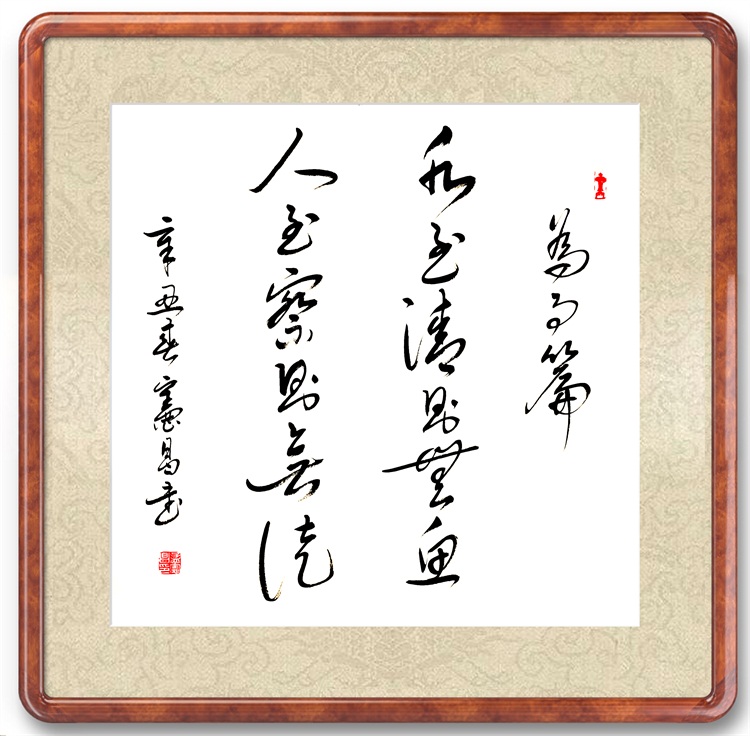 為篇
水至清則無魚
人至察則無徒
辛丑春憲昌書